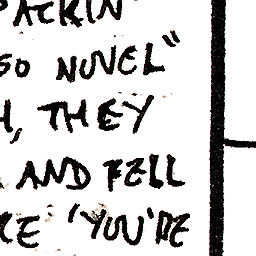 PACKIN'
SO NOVEL"
H, THEY
AND FELL
RE 'YOU'RE